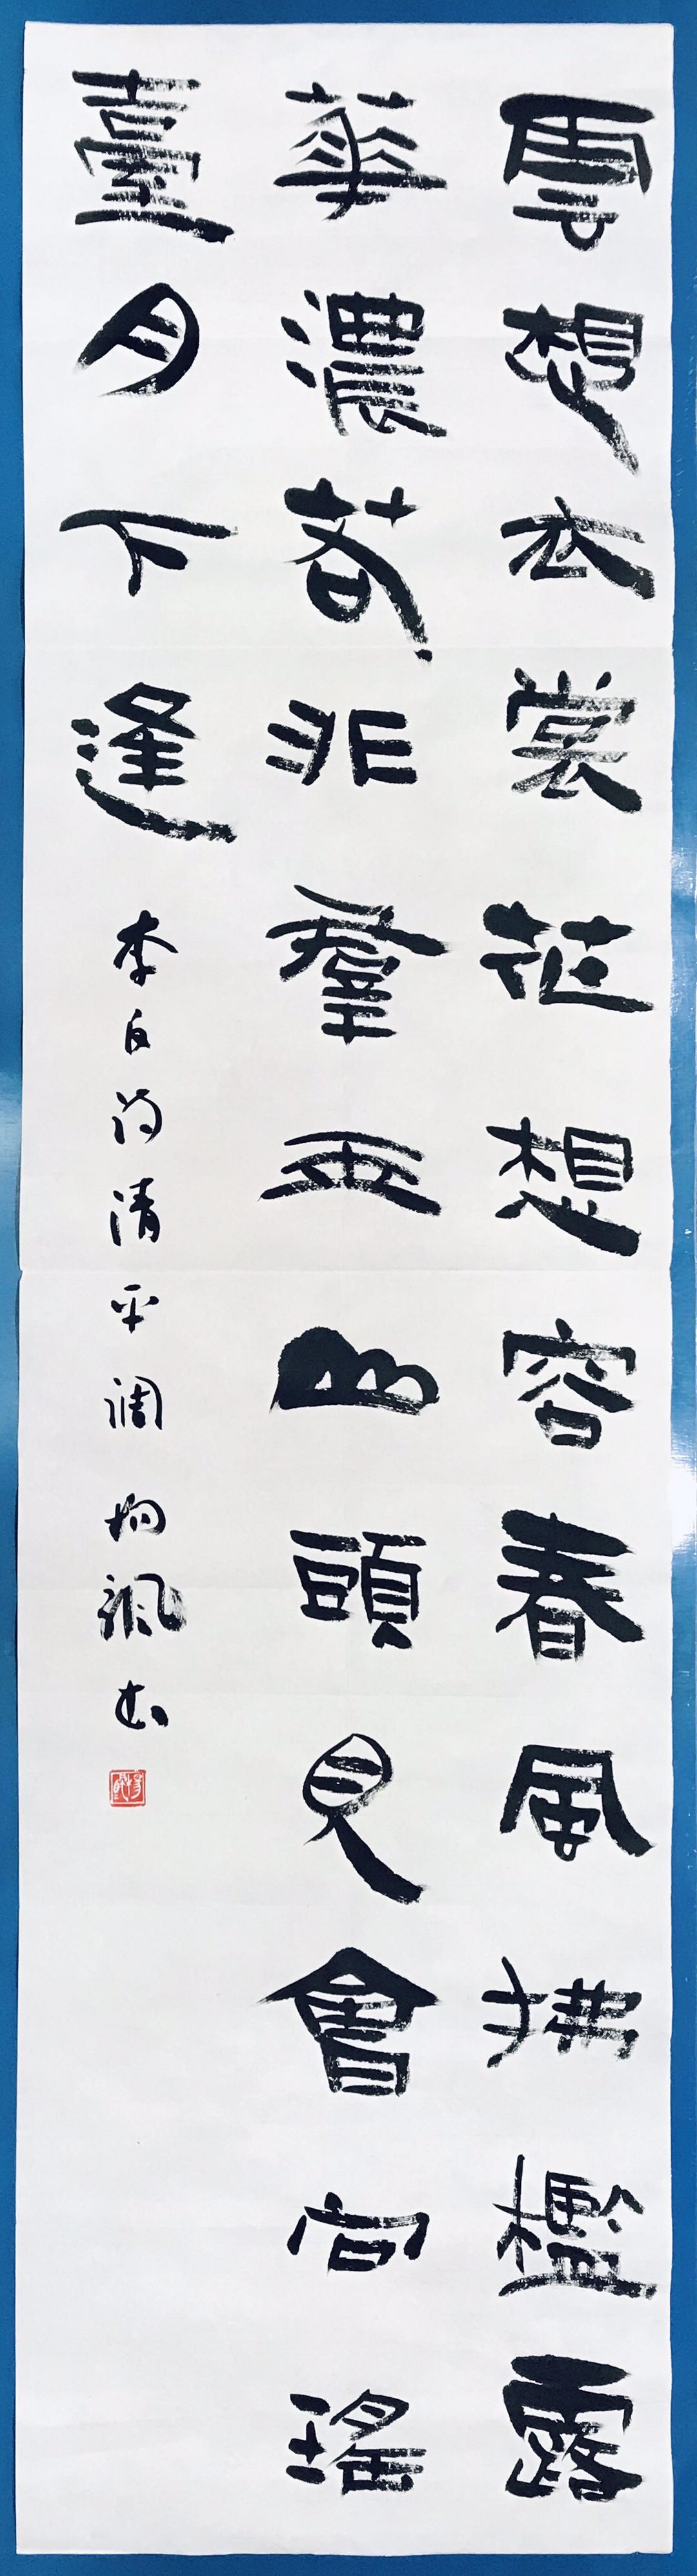 雲想衣裳花想容春風拂檻露
華濃若非羣玉山頭見會向瑤
臺月下逢 李白詩清平調 書